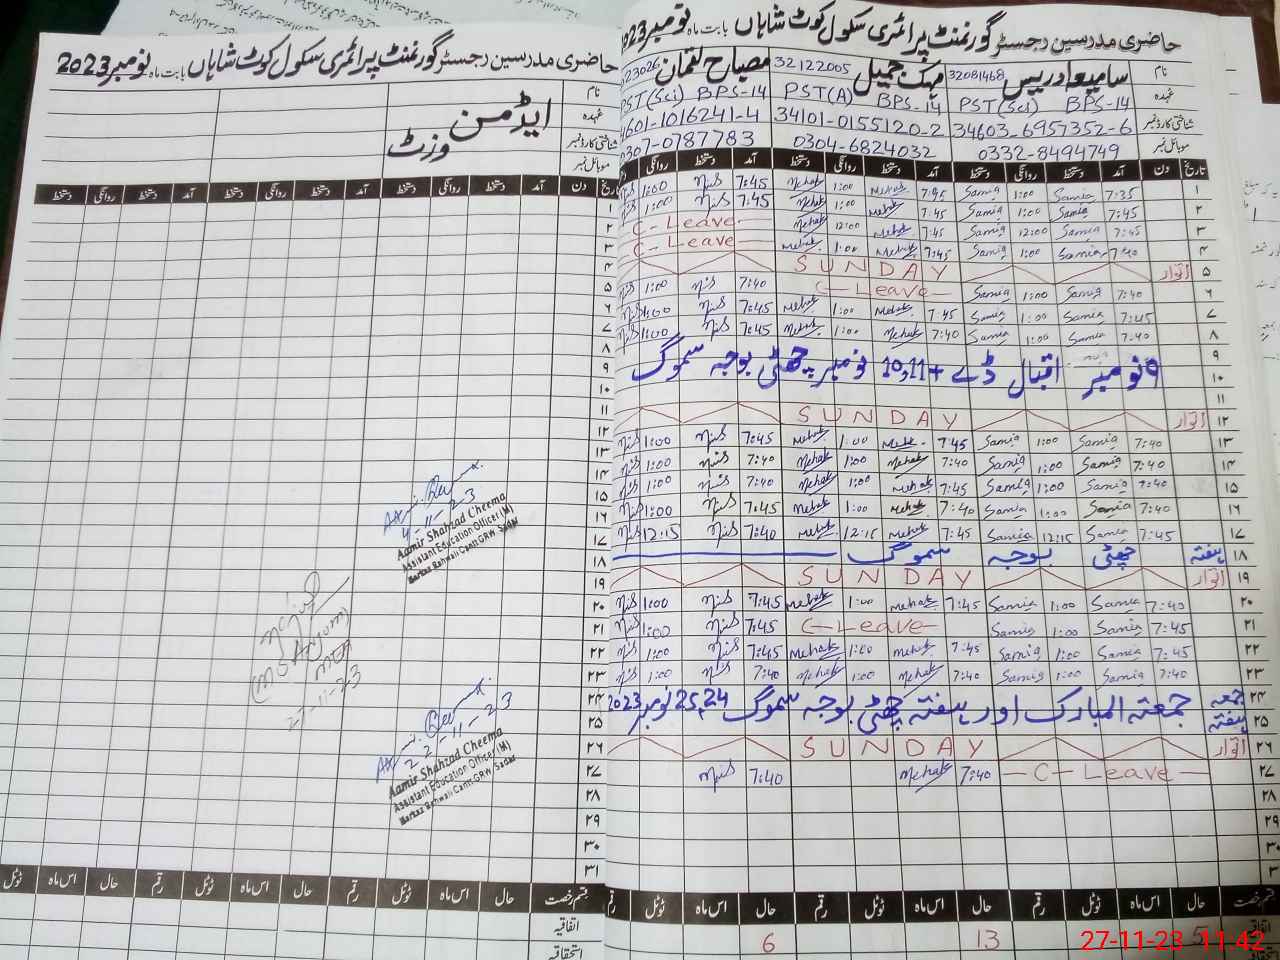 حاضری مدرسین رجسٹر گورنمنٹ پرائمری سکول کوٹ شاہاں بابت ماہ نومبر 2023
نام
عہدہ
شناختی کارڈ نمبر
موبائل نمبر
ایڈمن
وزٹ
تاریخ دن آمد دستخط روانگی دستخط آمد دستخط روانگی دستخط
۱
۲
۳
۴
۵
۶
۷
۸
۹
۱۰
۱۱
۱۲
۱۳
۱۴
۱۵
۱۶
۱۷
۱۸
۱۹
۲۰
۲۱
۲۲
۲۳
۲۴
۲۵
۲۶
۲۷
۲۸
۲۹
۳۰
۳۱
4-11-23
Aamir Shahzad Cheema
Assistant Education Officer (M)
Markaz Rahwali Cantt GRW, Sadar
MEA
27-11-23
22-11-23
Aamir Shahzad Cheema
Assistant Education Officer (M)
Markaz Rahwali Cantt GRW, Sadar
قسم رخصت حال اس ماہ ٹوٹل رقم حال اس ماہ ٹوٹل رقم حال اس ماہ ٹوٹل
اتفاقیہ
استحقاقیہ
حاضری مدرسین رجسٹر گورنمنٹ پرائمری سکول کوٹ شاہاں بابت ماہ نومبر 2023
نام سامیعہ ادریس 32081468 مہک جمیل 32122005 مصباح لقمان 23026
عہدہ PST(Sci) BPS-14 PST(A) BPS-14 PST(Sci) BPS-14
شناختی کارڈ نمبر 34603-6957352-6 34101-0155120-2 4601-1016241-4
موبائل نمبر 0332-8494749 0304-6824032 0307-0787783
تاریخ دن آمد دستخط روانگی دستخط آمد دستخط روانگی دستخط آمد دستخط روانگی
۱ 7:35 Samia 1:00 Samia 7:45 Mehak 1:00 Mehak 7:45 1:00
۲ 7:45 Samia 1:00 Samia 7:45 Mehak 1:00 Mehak 7:45 1:00
۳ 7:45 Samia 12:00 Samia 7:45 Mehak 12:00 Mehak C-Leave
۴ 7:40 Samia 1:00 Samia 7:45 Mehak 1:00 Mehak C-Leave
۵ اتوار SUNDAY
۶ 7:40 Samia 1:00 Samia C-Leave 7:40 1:00
۷ 7:45 Samia 1:00 Samia 7:45 Mehak 1:00 Mehak 7:45 1:00
۸ 7:40 Samia 1:00 Samia 7:40 Mehak 1:00 Mehak 7:45 1:00
۹
۱۰ 9 نومبر اقبال ڈے + 10,11 نومبر چھٹی بوجہ سموگ
۱۱
۱۲ اتوار SUNDAY
۱۳ 7:40 Samia 1:00 Samia 7:45 Mehak 1:00 Mehak 7:45 1:00
۱۴ 7:40 Samia 1:00 Samia 7:40 Mehak 1:00 Mehak 7:40 1:00
۱۵ 7:40 Samia 1:00 Samia 7:45 Mehak 1:00 Mehak 7:40 1:00
۱۶ 7:40 Samia 1:00 Samia 7:40 Mehak 1:00 Mehak 7:45 1:00
۱۷ 7:45 Samia 12:15 Samia 7:45 Mehak 12:15 Mehak 7:40 12:15
۱۸ ہفتہ چھٹی بوجہ سموگ
۱۹ اتوار SUNDAY
۲۰ 7:40 Samia 1:00 Samia 7:45 Mehak 1:00 Mehak 7:45 1:00
۲۱ 7:45 Samia 1:00 Samia C-Leave 7:45 1:00
۲۲ 7:45 Samia 1:00 Samia 7:45 Mehak 1:00 Mehak 7:45 1:00
۲۳ 7:40 Samia 1:00 Samia 7:40 Mehak 1:00 Mehak 7:40 1:00
۲۴ جمعہ جمعتہ المبارک اور ہفتہ چھٹی بوجہ سموگ 25,24 نومبر 2023
۲۵ ہفتہ
۲۶ اتوار SUNDAY
۲۷ C-Leave 7:40 Mehak 7:40
۲۸
۲۹
۳۰
قسم رخصت حال اس ماہ ٹوٹل رقم حال اس ماہ ٹوٹل رقم حال اس ماہ ٹوٹل رقم
اتفاقیہ 5 13 6
27-11-23 11:42